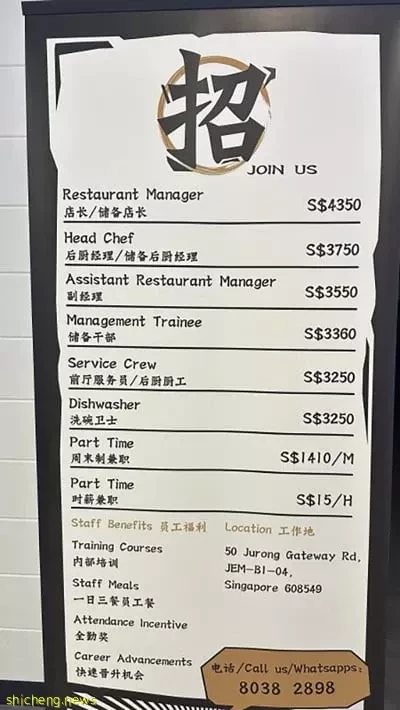 招
JOIN US
Restaurant Manager
店长/储备店长
S$4350
Head Chef
后厨经理/储备后厨经理
S$3750
Assistant Restaurant Manager
副经理
S$3550
Management Trainee
储备干部
S$3360
Service Crew
前厅服务员/后厨厨工
S$3250
Dishwasher
洗碗卫士
S$3250
Part Time
周末制兼职
S$1410/M
Part Time
时薪兼职
S$15/H
Staff Benefits 员工福利
Training Courses
内部培训
Staff Meals
一日三餐员工餐
Attendance Incentive
全勤奖
Career Advancements
快速晋升机会
Location 工作地
50 Jurong Gateway Rd,
JEM-B1-04,
Singapore 608549
电话/Call us/Whatsapps:
8038 2898
shicheng.news